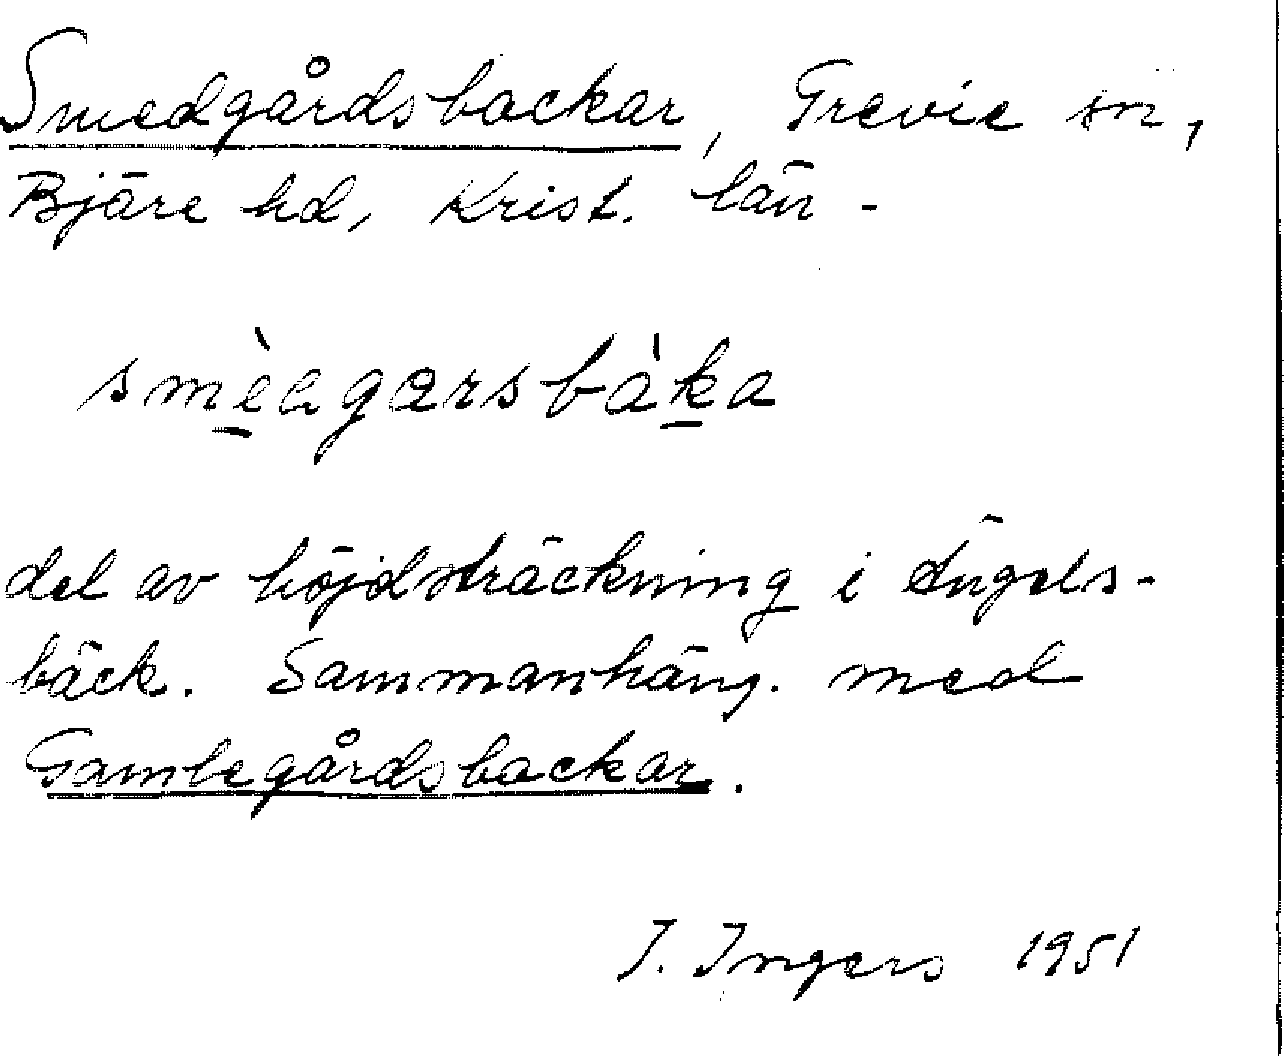 Smedgårdsbackar, Grevie sn,
Bjäre hd, Krist. län -
smèagarsbàka
del av höjdsträckning i Ängels-
bäck. Sammanhäng. med
Gamlegårdsbackar.
I. Ingers 1951